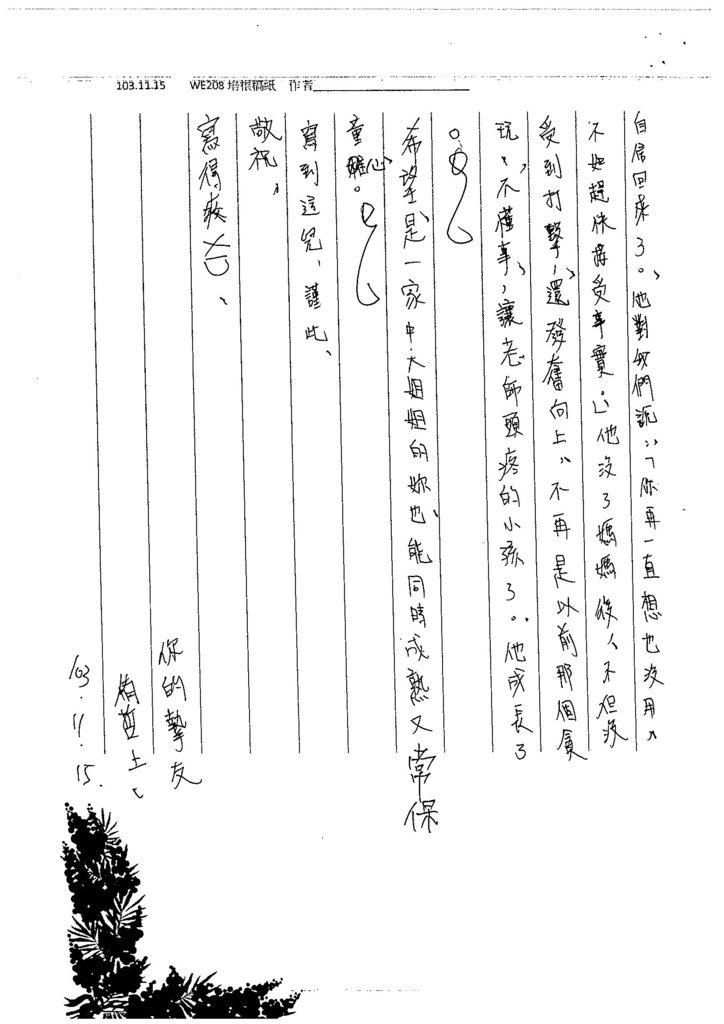 103.11.15 WE208 培根稿紙 作者
自信回來了。他對我們說:「你再一直想也沒用,
不如趕快接受事實。」他沒了媽媽後,不但沒
受到打擊,還發奮向上,不再是以前那個貪
玩、不懂事,讓老師頭疼的小孩了。他成長了
。
希望是一家中大姐姐的妳也能同時成熟又常保
童心。
寫到這兒,謹此、
敬祝,
寫得疲ㄨㄇ、
你的摯友
侑哲上
103.11.15.